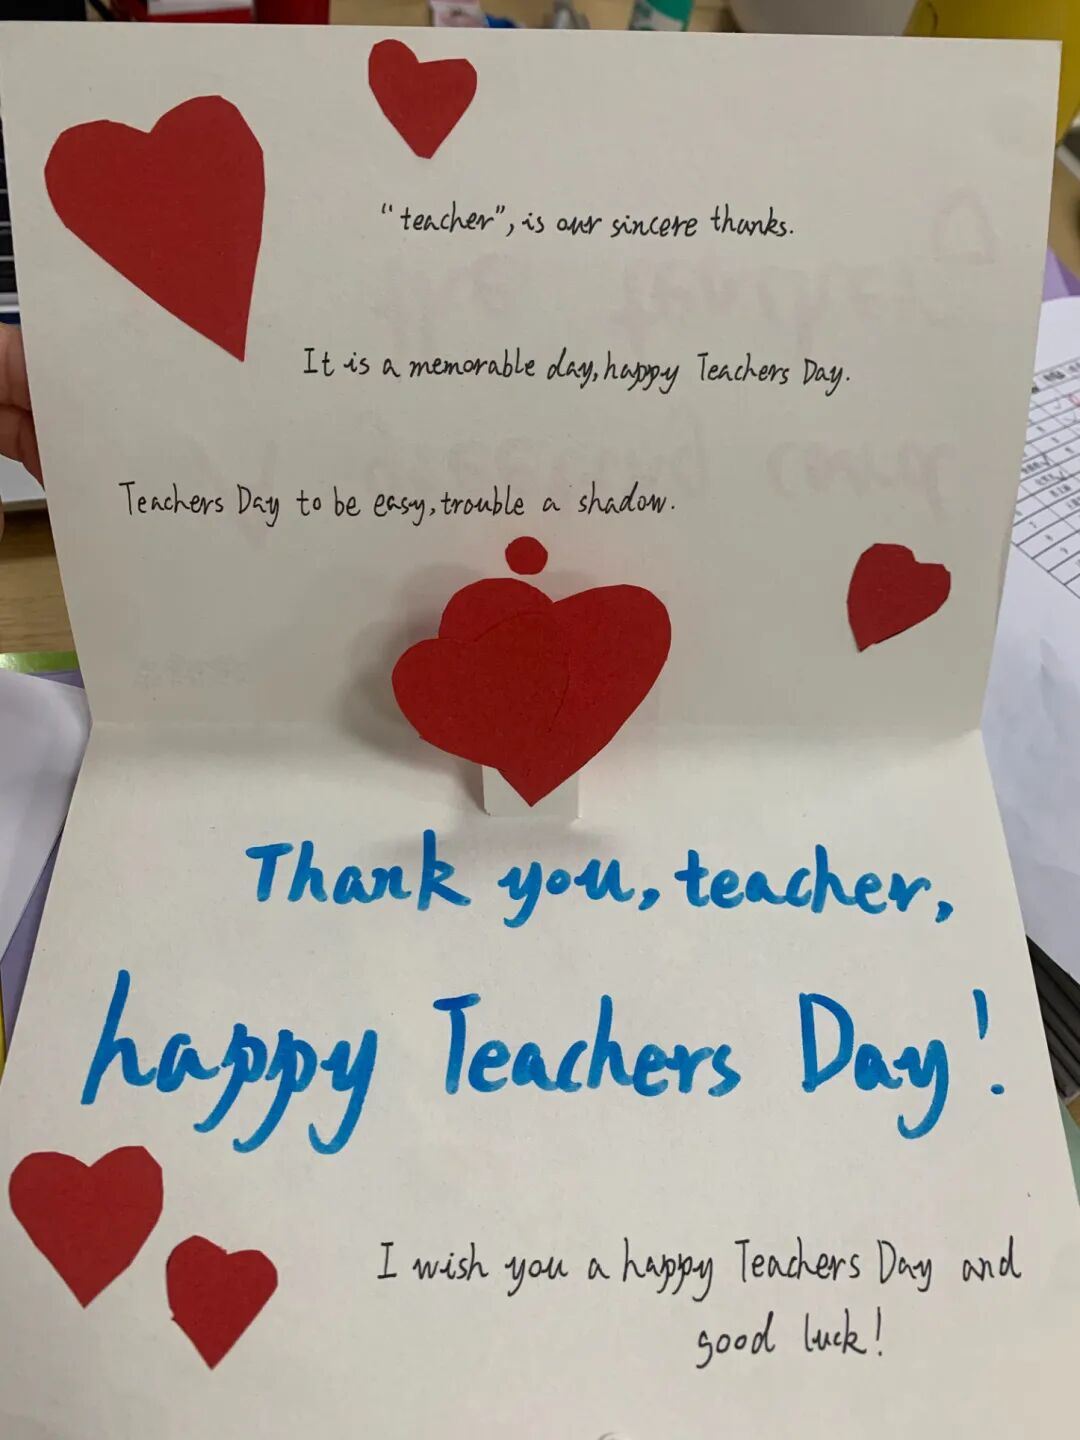 "teacher", is our sincere thanks.
It is a memorable day, happy Teachers Day.
Teachers Day to be easy, trouble a shadow.
Thank you, teacher,
happy Teachers Day!
I wish you a happy Teachers Day and
good luck!